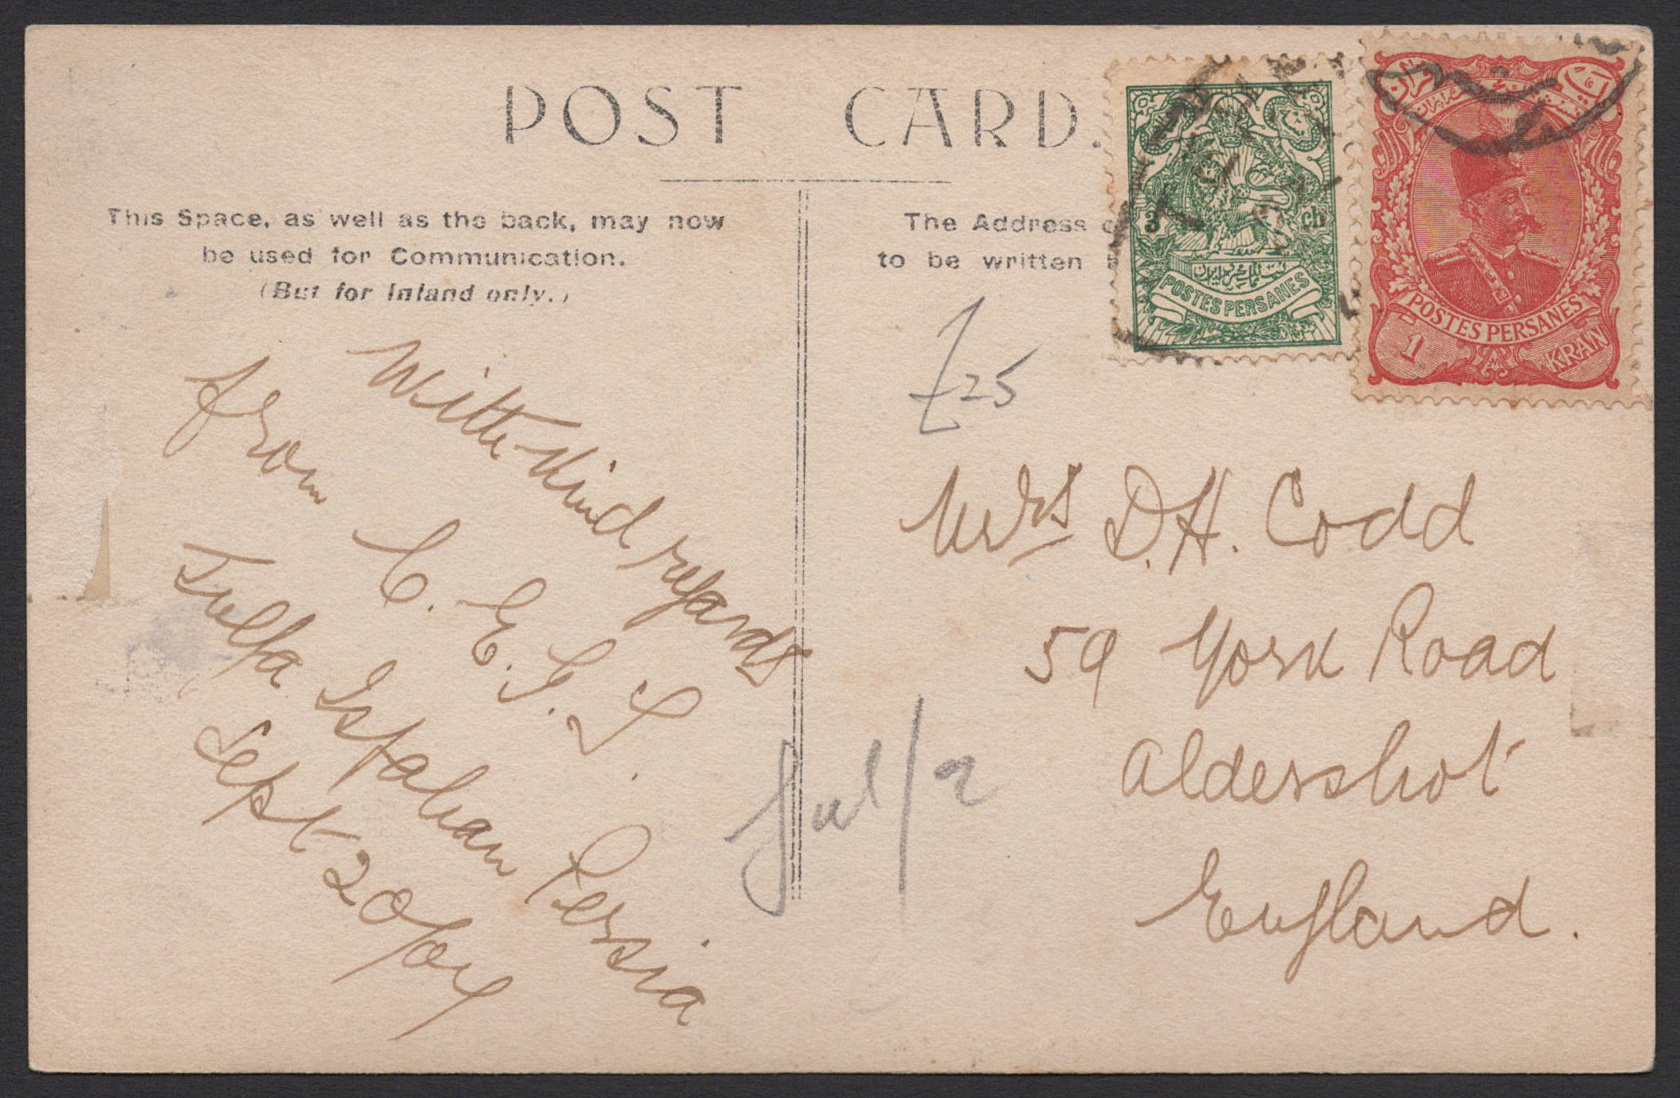 POST CARD.
This Space, as well as the back, may now
be used for Communication.
(But for Inland only.)
The Address
to be written
3 ch
POSTES PERSANES
POSTES PERSANES
1 KRAN
£25
With kind regards
from C. E. G. S.
Julfa Isfahan Persia
Sept 20/04
Jul/2
Mrs D.H. Codd
59 York Road
Aldershot
England.